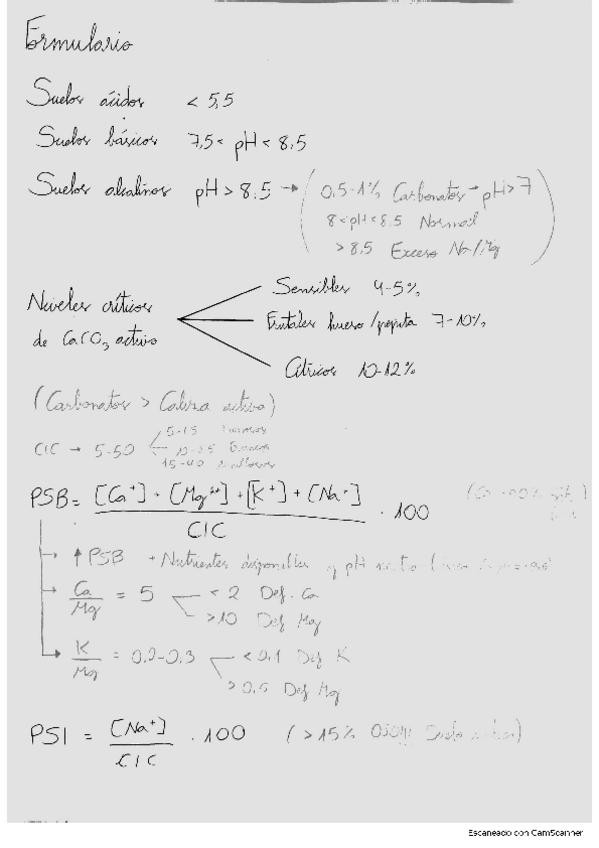 Formulario
Suelos ácidos < 5,5
Suelos básicos 7,5 < pH < 8,5
Suelos alcalinos pH > 8.5 → (0.5-1% Carbonatos → pH > 7
8 < pH < 8.5 Normal
> 8.5 Exceso Na/Mg)
Niveles críticos
de CaCO3 activo
Sensibles 4-5%
Frutales hueso/pepita 7-10%
Cítricos 10-12%
(Carbonatos > Caliza activa)
CIC → 5-50
5-15
10-25
15-40
PSB = [Ca+] + [Mg2+] + [K+] + [Na+] / CIC · 100
↑ PSB + Nutrientes disponibles y pH
Ca/Mg = 5
< 2 Def. Ca
> 10 Def Mg
K/Mg = 0.2-0.3
< 0.1 Def K
> 0.5 Def Mg
PSI = [Na+] / CIC · 100 (> 15% Suelo
Escaneado con CamScanner